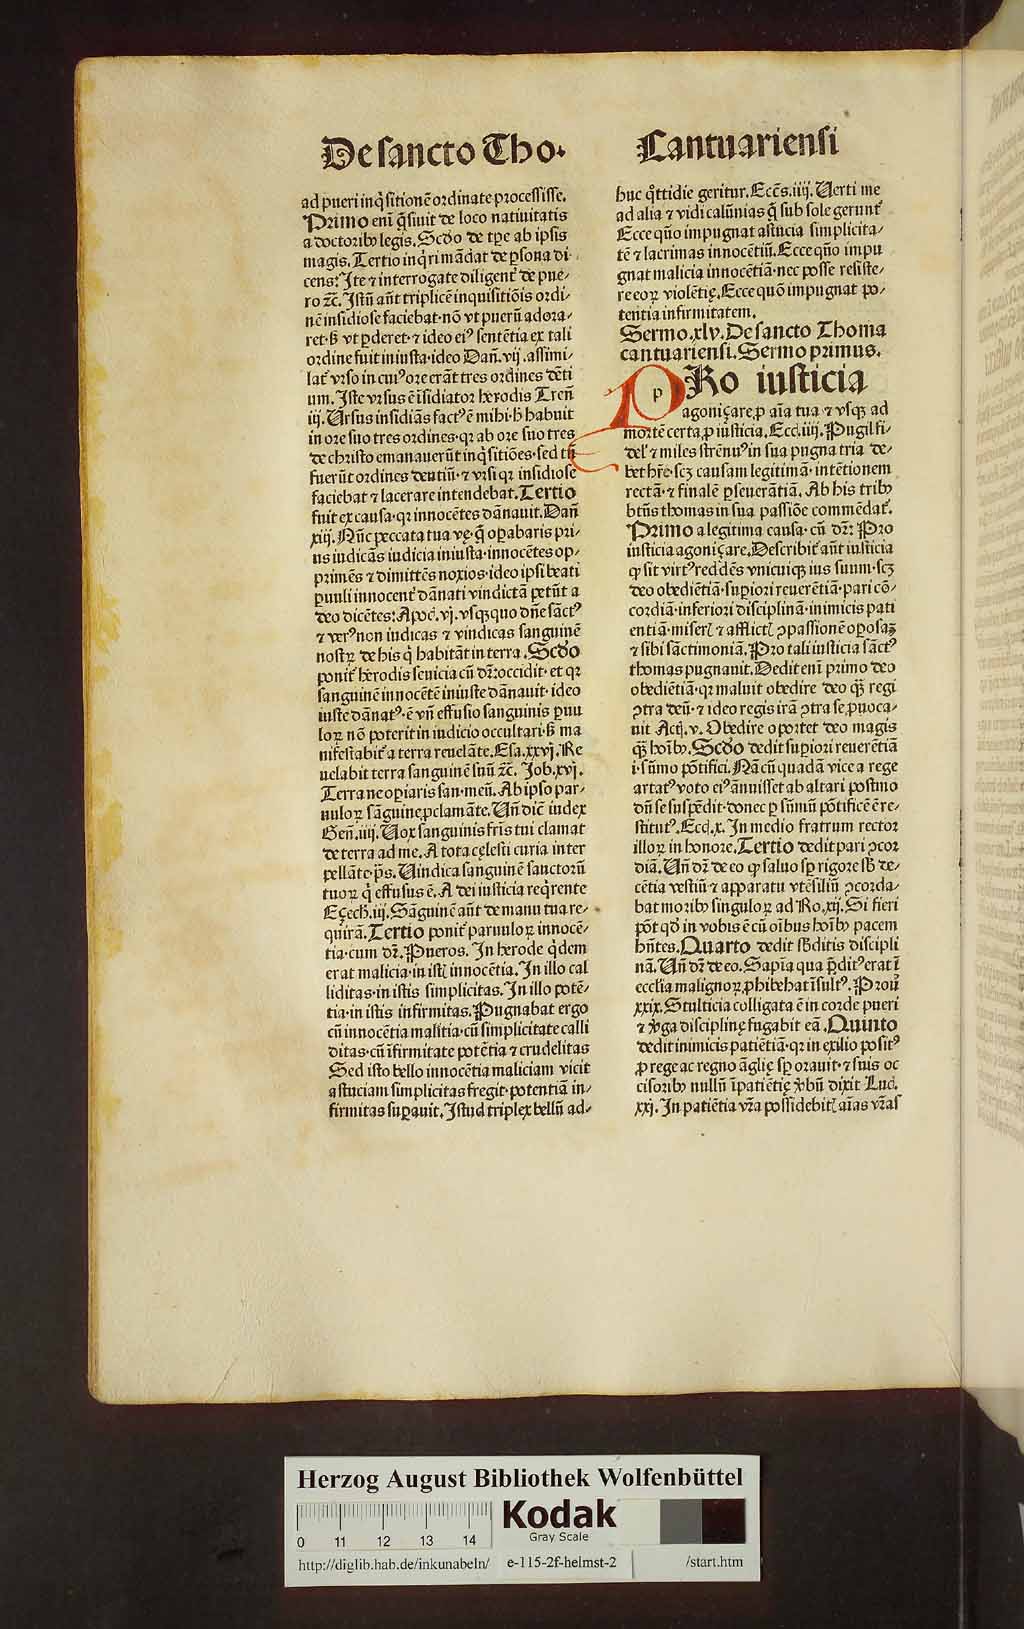 De sancto Tho.
ad pueri inq̃sitionē ordinate processisse.
Primo eni q̃siuit de loco natiuitatis
a doctoribꝰ legis. Scdo de tꝑe ab ipsis
magis. Tertio inq̃ri mādat de ꝑsona di-
cens: Ite ⁊ interrogate diligent̉ de pue-
ro ⁊c̄. Istū aūt triplicē inquisitiōis ordi-
nē insidiose faciebat. nō vt puerū adora-
ret. s̄ vt ꝑderet. ⁊ ideo eiꝰ sentētia ex tali
ordine fuit iniusta. ideo Dañ. vij. assimi-
lat̉ vrso in cuiꝰ ore erāt tres ordines dēti
um. Iste vrsus ē isidiator herodis Tren̄
iij. Ursus insidiās factꝰ ē mihi. s̄ habuit
in ore suo tres ordines. qꝛ ab ore suo tres
de christo emanauerūt inq̃sitiōes. sed tn̄
fuerūt ordines dentiū. ⁊ vrsi qꝛ insidiose
faciebat ⁊ lacerare intendebat. Tertio
fuit ex causa. qꝛ innocētes dānauit. Dañ
xiij. Nūc peccata tua vę. q̄ oꝑabaris pri-
us iudicās iudicia iniusta. innocētes op-
primēs ⁊ dimittēs noxios. ideo ipsi beati
ꝑuuli innocent̉ dānati vindictā petūt a
deo dicētes: Apoc̄. vj. vsqꝫquo dn̄e sāctꝰ
⁊ verꝰ non iudicas ⁊ vindicas sanguinē
nostꝝ de his q̇ habitāt in terra. Scdo
ponit̉ herodis seuicia cū dr̄: occidit. et qꝛ
sanguinē innocētē iniuste dānauit. ideo
iuste dānatꝰ. ē vn̄ effusio sanguinis ꝑuu
loꝝ nō poterit in iudicio occultari. s̄ ma
nifestabit̉ a terra reuelāte. Esa. xxvj. Re
uelabit terra sanguinē suū ⁊c̄. Job. xvj.
Terra ne oꝑiaris san. meū. Ab ipso par-
uuloꝝ sāguine ꝓclamāte. Un̄ dic̄ iudex
Gen̄. iiij. Uox sanguinis fr̄is tui clamat
de terra ad me. A tota cęlesti curia inter
pellāte. p̄s. Uindica sanguinē sanctorū
tuoꝝ q̇ effusus ē. A dei iusticia req̇rente
Eçech̄. iij. Sāguinē aūt de manu tua re-
quirā. Tertio ponit̉ paruuloꝝ innocē-
tia. cum dr̄. Pueros. In herode q̇dem
erat malicia. in istꝭ innocētia. In illo cal
liditas. in istis simplicitas. In illo potē-
tia. in istis infirmitas. Pugnabat ergo
cū innocētia malitia. cū simplicitate calli
ditas. cū ifirmitate potētia ⁊ crudelitas
Sed isto bello innocētia maliciam vicit
astuciam simplicitas fregit. potentiā in-
firmitas suꝑauit. Istud triplex bellū ad-
Cantuariensi
huc q̊ttidie geritur. Eccs̄. iiij. Uerti me
ad alia ⁊ vidi calūnias q̄ sub sole gerunt̉
Ecce quō impugnat astucia simplicita-
tē ⁊ lacrimas innocētiū. Ecce quō impu
gnat malicia innocētiā. nec posse resiste-
re eoꝝ violētię. Ecce quō impugnat po-
tentia infirmitatem.
Sermo. xlv. De sancto Thoma
cantuariensi. Sermo primus.
PRo iusticia
agoniçare ꝓ aīa tua ⁊ vsqꝫ ad
mortē certa ꝓ iusticia. Eccl̄. iiij. Pugil fi-
del' ⁊ miles strēnuꝰ in sua pugna tria de-
bet hr̄e. scꝫ causam legitimā. intētionem
rectā. ⁊ finalē ꝑseuerātiā. Ab his tribꝰ
bt̄us thomas in sua passiōe commēdat̉.
Primo a legitima causa. cū dr̄: Pro
iusticia agoniçare. Describit̉ aūt iusticia
ꝙ sit virtꝰ reddēs vnicuiqꝫ ius suum. scꝫ
deo obediētiā. suꝑiori reuerētiā. pari cō-
cordiā. inferiori disciplinā. inimicis pati
entiā. miserꝭ ⁊ afflictꝭ ꝯpassionē oꝑosaꝫ
⁊ sibi sāctimoniā. Pro tali iusticia sāctꝰ
thomas pugnauit. Dedit eni primo deo
obediētiā. qꝛ maluit obedire deo qꝫ regi
ꝯtra deū. ⁊ ideo regis irā ꝯtra se ꝓuoca-
uit Actꝭ. v. Obedire oportet deo magis
qꝫ hoībꝰ. Scdo dedit suꝑiori reuerētiā
i. sūmo pōtifici. Nā cū quadā vice a rege
artatꝰ voto eiꝰ ānuisset ab altari postmo
dū se suspēdit. donec ꝑ sūmū pōtificē ē re-
stitutꝰ. Eccl̄. x. In medio fratrum rector
illoꝝ in honore. Tertio dedit pari ꝯcor
diā. Un̄ dr̄ de eo ꝙ saluo sꝑ rigore sb̄ de-
cētia vestiū ⁊ apparatu vtēsiliū ꝯcorda-
bat moribꝰ singuloꝝ ad Ro. xij. Si fieri
pōt qd̓ in vobis ē cū oībus hoībꝰ pacem
hn̄tes. Quarto dedit sb̄ditis discipli
nā. Un̄ dr̄ de eo. Sapīa qua p̄ditꝰ erat ī
ecclīa malignoꝝ ꝓhibebat īsultꝰ. Prou̓
xxix. Stulticia colligata ē in corde pueri
⁊ v̓ga disciplinę fugabit eā. Quinto
dedit inimicis patiētiā. qꝛ in exilio positꝰ
ꝓ rege ac regno āglię sꝑ orauit. ⁊ suis oc
cisoribꝰ nullū īpatiētię v̓bū dixit Luc̄.
xxj. In patiētia vr̄a possidebitꝭ aīas vr̄as
p
Herzog August Bibliothek Wolfenbüttel
0 11 12 13 14
Kodak
Gray Scale
http://diglib.hab.de/inkunabeln/ e-115-2f-helmst-2 /start.htm